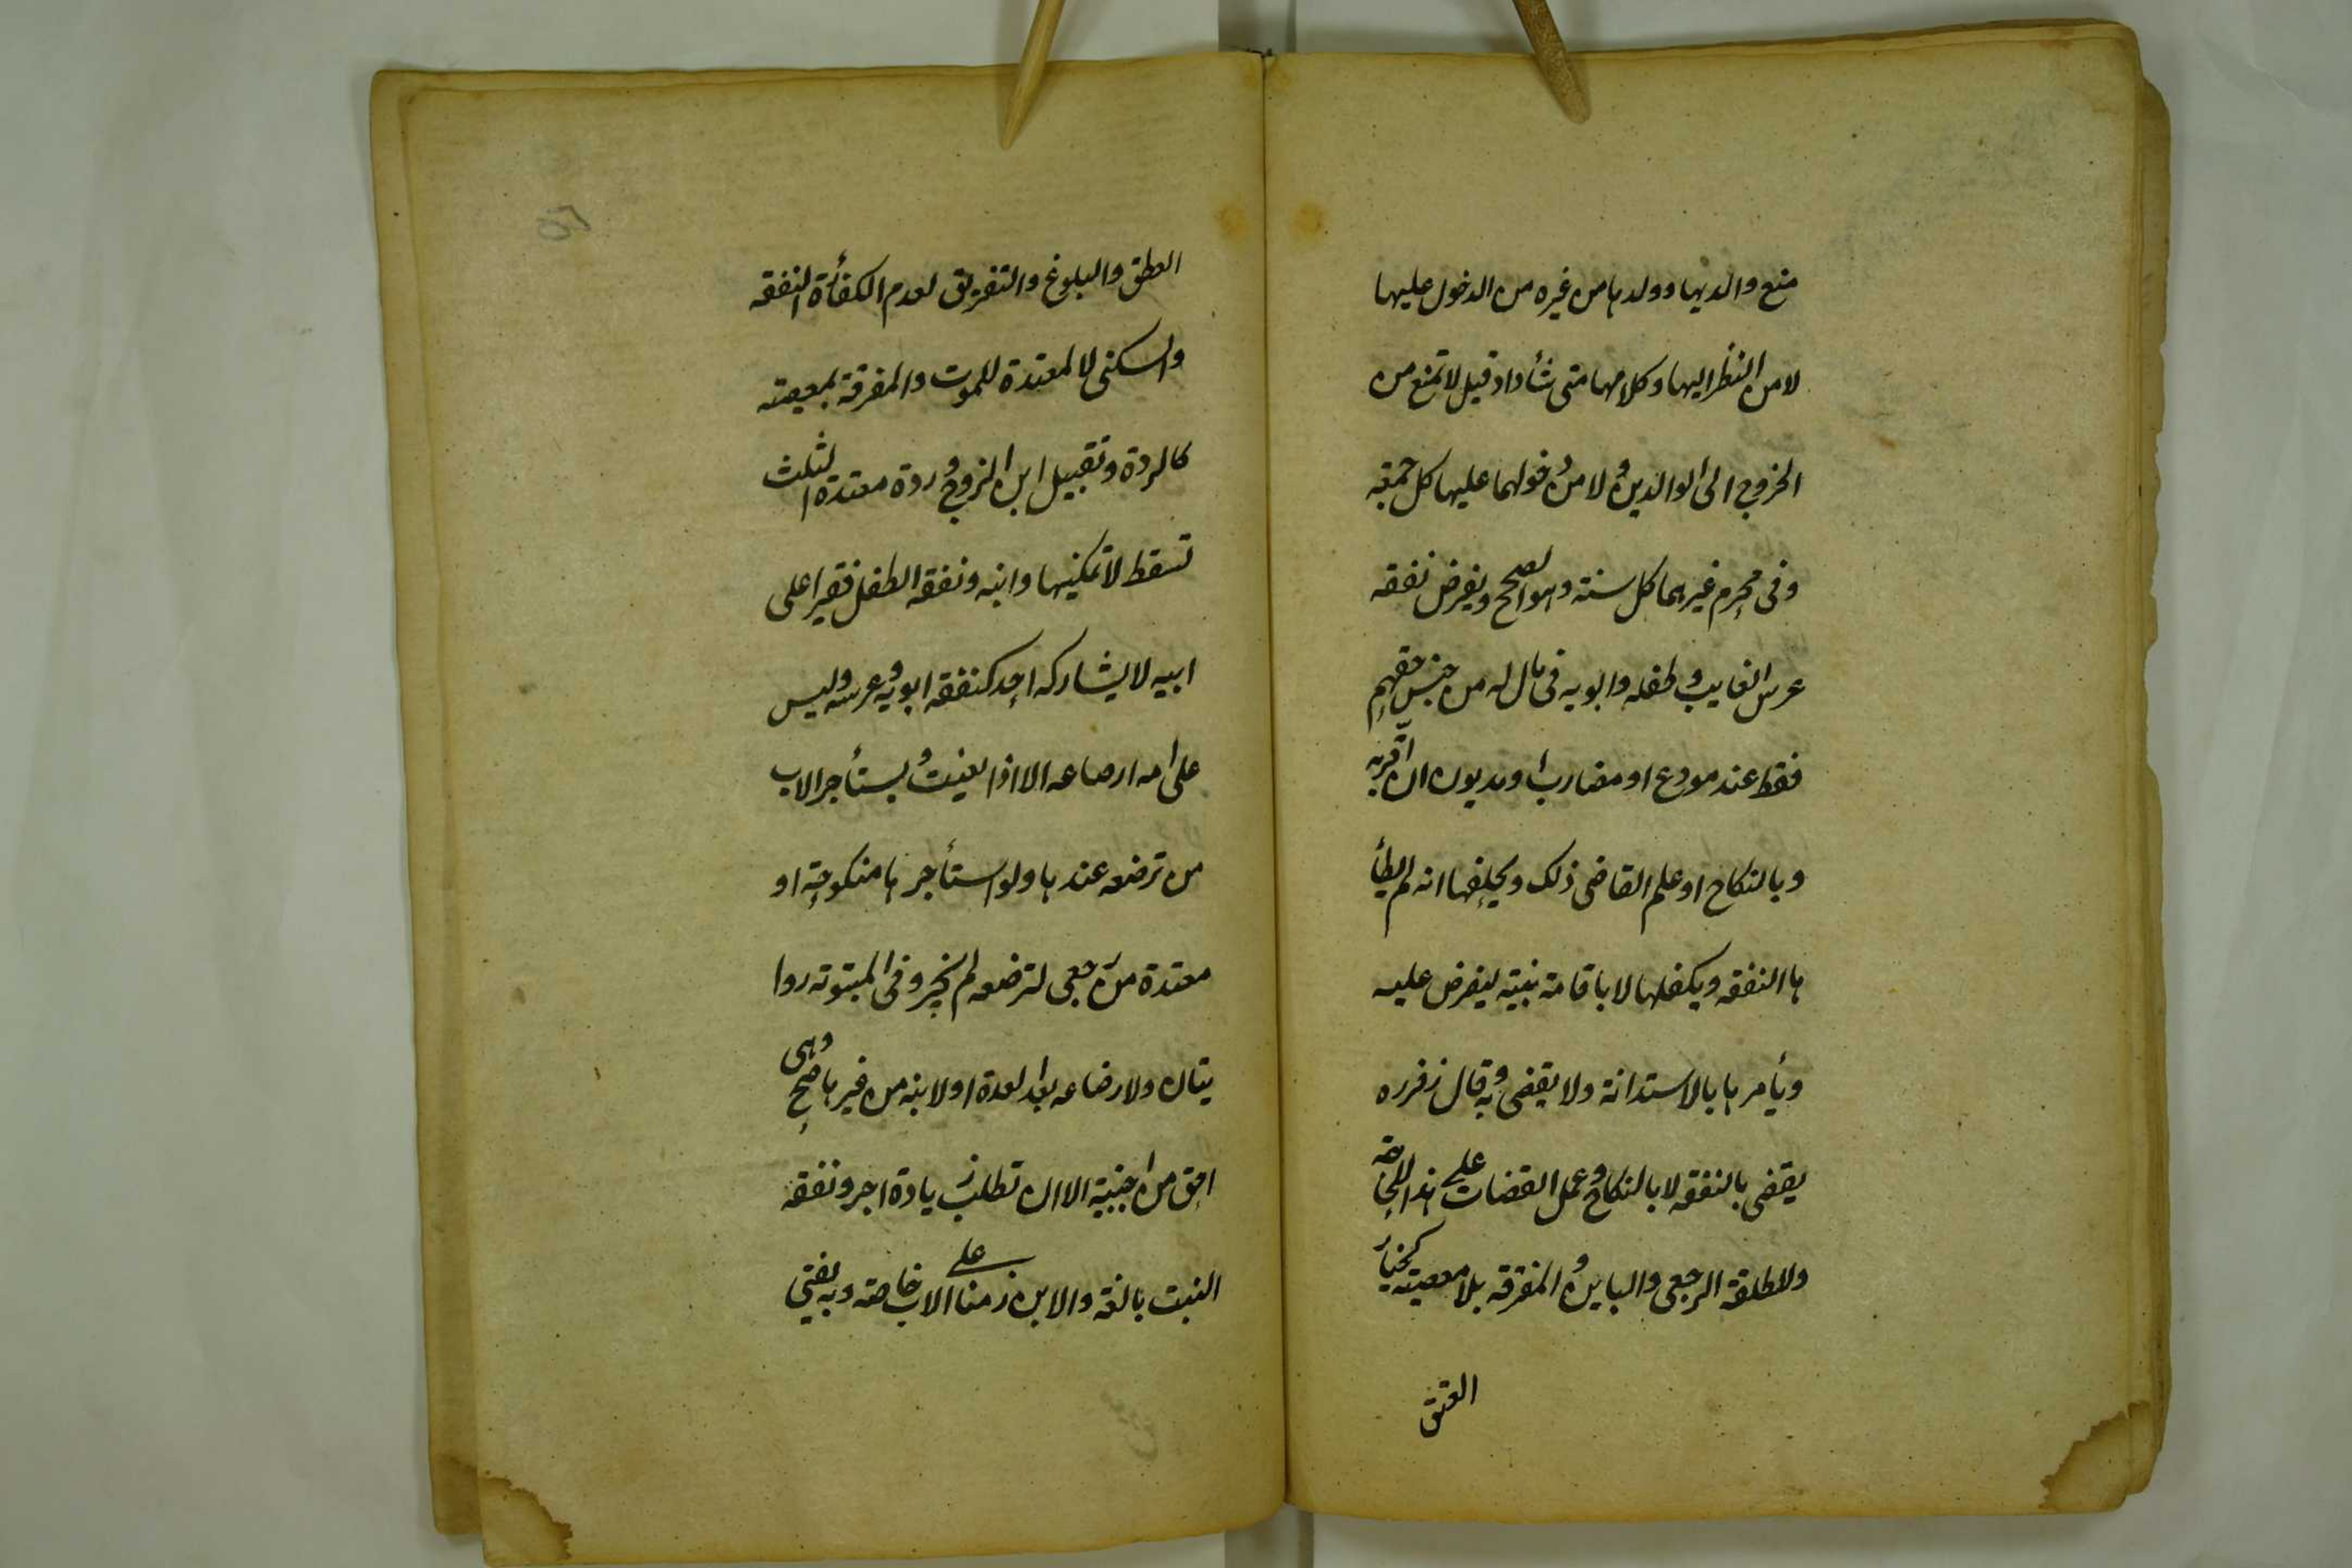 منع والديها وولدها من غيره من الدخول عليها
لا من النظر اليها وكلامها متى شأوا وقيل لا تمنع من
الخروج الى الوالدين ولا من دخولهما عليها كل جمعة
وفى محرم غيرهما كل سنة وهو الصحيح ويفرض نفقه
عرس الغايب وطفله وابويه فى مال له من جنس حقهم
فقط عند مودع او مضارب او مديون ان اقر به
وبالنكاح او علم القاضى ذلك ويحلفها انه لم يطأ
ها النفقه ويكفلها لا باقامة بينة ليفرض عليه
ويأمرها بالاستدانة ولا يقضى به وقال زفر ره
يقضى بالنفقه لا بالنكاح وعمل القضات على هذا للحاجة
ولمطلقة الرجعى والباين والمفرقه بلا معصيته كخيار
العتق
العطق والبلوغ والتفريق لعدم الكفأة النفقه
والسكنى لا لمعتدة للموت والمفرقة بمعصيته
كالردة وتقبيل ابن الزوج وردة معتدة الثلث
تسقط لا تمكينها وابنه ونفقه الطفل فقيرا على
ابيه لا يشاركه احد كنفقه ابويه وعرسه وليس
على امه ارضاعه الا اذا تعينت ويستأجر الاب
من ترضعه عندها ولو استأجرها منكوحة او
معتدة من رجعى لترضعه لم يجز وفى المبتوته روا
يتان ولارضاعه بعد العدة او لابنه من غيرها صح وهى
احق من اجنبية الا ان تطلب زيادة اجر ونفقه
البنت بالغة والابن زمنا على الاب خاصه وبه يفتى